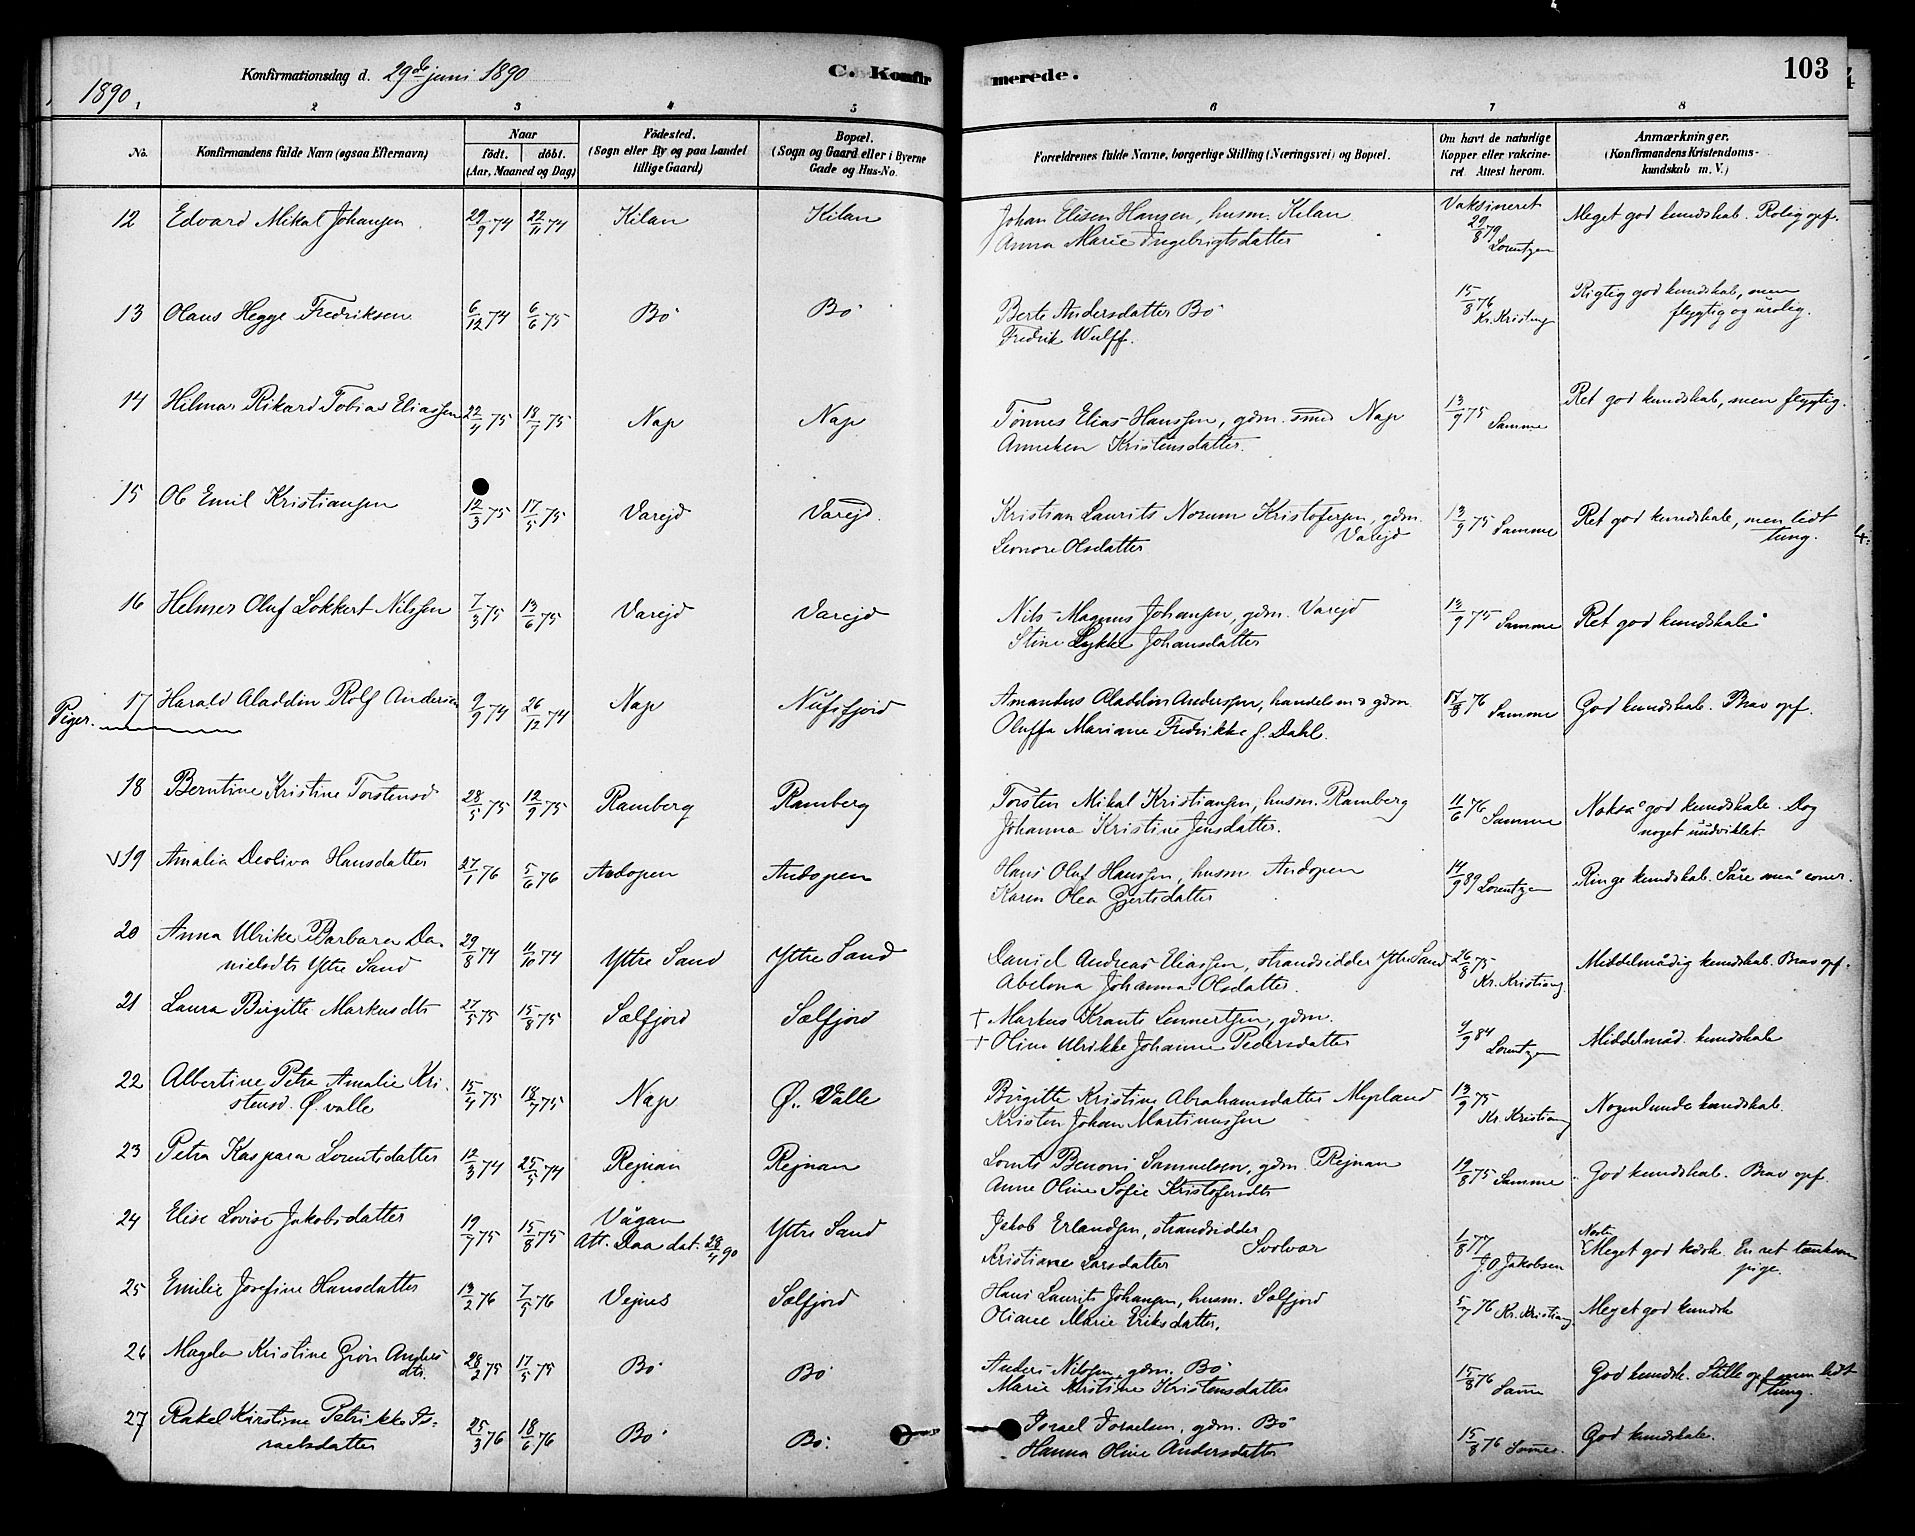 Konfirmationsdag d. 29de juni 1890
C. Konfirmerede.
103
1890.
1 2 3 4 5 6 7 8
No.
Konfirmandens fulde Navn (ogsaa Efternavn)
Naar
födt. döbt.
(Aar, Maaned og Dag)
Födested.
(Sogn eller By og paa Landet
tillige Gaard)
Bopæl.
(Sogn og Gaard eller i Byerne
Gade og Hus-No.
Forældrenes fulde Navne, borgerlige Stilling (Næringsvei) og Bopæl.
Om havt de naturlige
Kopper eller vakcine-
ret. Attest herom.
Anmærkninger.
(Konfirmandens Kristendoms-
kundskab m. V.)
12 Edvard Mikal Johansen 29/9 74 22/11 74 Kilan Kilan Johan Elisen Hansen, husm. Kilan Vaksineret
Anna Marie Ingebrigtsdatter 29/8 79 Lorentzen Meget god kundskab. Rolig opf.
13 Olaus Hegge Fredriksen 6/12 74 6/6 75 Bö Bö Berte Andersdatter Bö 15/8 76 Kr. Kristians Rigtig god kundskab, men
Fredrik Wulff. flygtig og urolig.
14 Hilmar Rikard Tobias Eliassen 22/4 75 18/7 75 Nap Nap Tönnes Elias Hanssen, gdm. smed Nap 13/9 75 Samme Ret god kundskab, men flygtig.
Anneken Kristensdatter.
15 Ol Emil Kristiansen 12/3 75 17/5 75 Varejd Varejd. Kristian Laurits Norum Kristofersen, gdm. Varejd 13/9 75 Samme Ret god kundskab, men lidt
Leonore Olsdatter tung.
16 Helmer Oluf Lokkert Nilssen 7/3 75 13/6 75 Varejd Varejd Nils Magnus Johansen, gdm. Varejd 13/9 75 Samme Ret god kundskab
Stine Lykke Johansdatter
17 Harald Aladdin Rolf Andersen 9/9 74 26/12 74 Nap Nufsfjord Amandus Aladdin Anderssen, handelsm & gdm. 17/8 76 Samme God kundskab. Brav opf.
Oluffa Mariane Fredrikke f. Dahl.
Piger.
18 Berntine Kristine Torstensd 28/5 75 12/9 75 Ramberg Ramberg Torsten Mikal Kristiansen, husm. Ramberg 11/6 76 Samme Nokså god kundskab. Dog
Johanna Kristine Jensdatter. noget uudviklet.
19 Amalia Deoliva Hansdatter 27/1 76 5/6 76 Andopen Andopen Hans Oluf Hanssen, husm Andopen 14/9 89 Lorentzen Ringe kundskab.
Karen Olea Gjertsdatter
20 Anna Ulrike Barbara Da-
nielsdtr Ytre Sand 29/8 74 11/10 74 Ytre Sand Ytre Sand Daniel Andreas Eliassen, strandsidder Ytre Sand 26/8 75 Kr. Kristians. Middelmådig kundskab. Brav opf.
Abelona Johanna Olsdatter.
21 Laura Birgitte Markusdtr 27/5 75 15/8 75 Sælfjord Sælfjord + Markus Krants Lennertsen, gdm. 9/9 84 Lorentzen Middelmåd. kundskab
+ Oline Ulrikke Johanne Pedersdatter
22 Albertine Petra Amalie Kri-
stensd. Ø. valle 15/4 75 18/7 75 Nap Ø. Valle Birgitte Kristine Abrahamsdatter Myrland 13/9 75 Kr. Kristians Nogenlunde kundskab.
Kristen Johan Martinussen
23 Petra Kaspara Lorentsdatter 12/3 74 25/5 74 Rejnan Rejnan Lornts Benoni Samuelsen, gdm. Rejnan 19/8 75 Samme God kundskab. Brav opf.
Anne Oline Sofie Kristofersdtr
24 Elise Lovise Jakobsdatter 19/7 75 15/8 75 Vågan Ytre Sand Jakob Erlandsen, strandsidder Svolvær 1/8 77 J. O. Jakobsen Meget god kdsk. En ret tænksom
Att. Daa dat. 28/4 90 Kristiane Larsdatter pige.
25 Emilie Josefine Hansdatter 13/2 76 7/5 76 Vejnes Sælfjord Hans Laurits Johansen, husm. Sælfjord 5/7 76 Kr. Kristians Meget god kundsk
Oliane Marie Eriksdatter.
26 Magda Kristine Grön Anders
dtr. 28/2 75 17/5 75 Bö Bö Anders Nilssen, gdm. Bö 15/8 76 Samme God kundsk. Stille opf men lidt
Marie Kristine Kristensdatter tung.
27 Rakel Kirstine Petrikke Is-
raelsdatter 25/3 76 18/6 76 Bö Bö. Israel Israelsen, gdm. Bö 15/8 76 Samme. God kundskab.
Hanna Oline Andersdatter